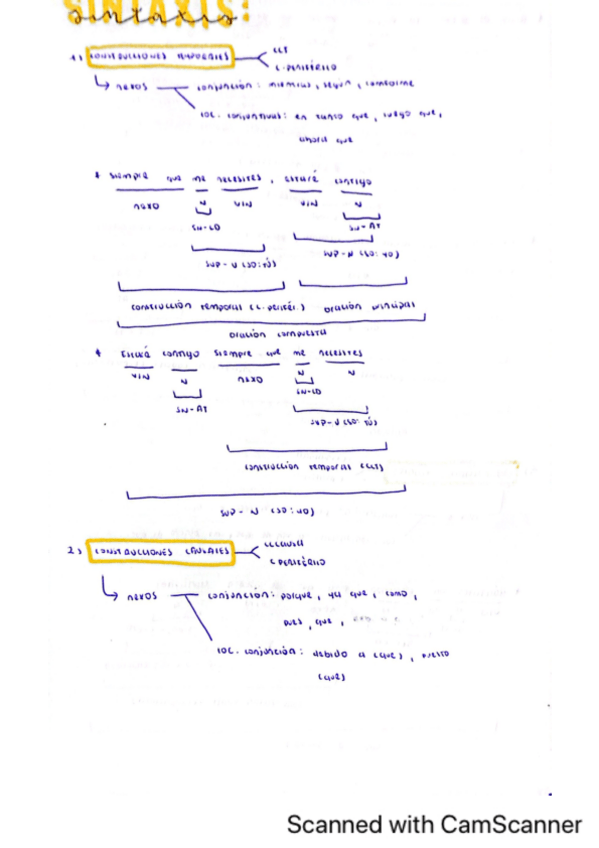 SINTAXIS:
sintaxis
1) CONSTRUCCIONES TEMPORALES
CCT
C. PERIFÉRICO
nexos
conjunción: mientras, según, conforme
loc. conjuntivas: en tanto que, luego que,
ahora que
* siempre que me necesites, estaré contigo
nexo N V/N V/N N
SN-CD SN-AT
SVP-N (SO: YO)
SVP-V (SO: TÚ)
construcción temporal (C. perifér.) oración principal
oración compuesta
* Estaré contigo siempre que me necesites
V/N N nexo N N
SN-AT SN-CD
SVP-V (SO: TÚ)
construcción temporal (CCT)
SVP-N (SO: YO)
2) CONSTRUCCIONES CAUSALES
CCCausa
C PERIFÉRICO
nexos
conjunción: porque, ya que, como,
pues, que,
loc. conjunción: debido a (que), puesto
(que)
Scanned with CamScanner